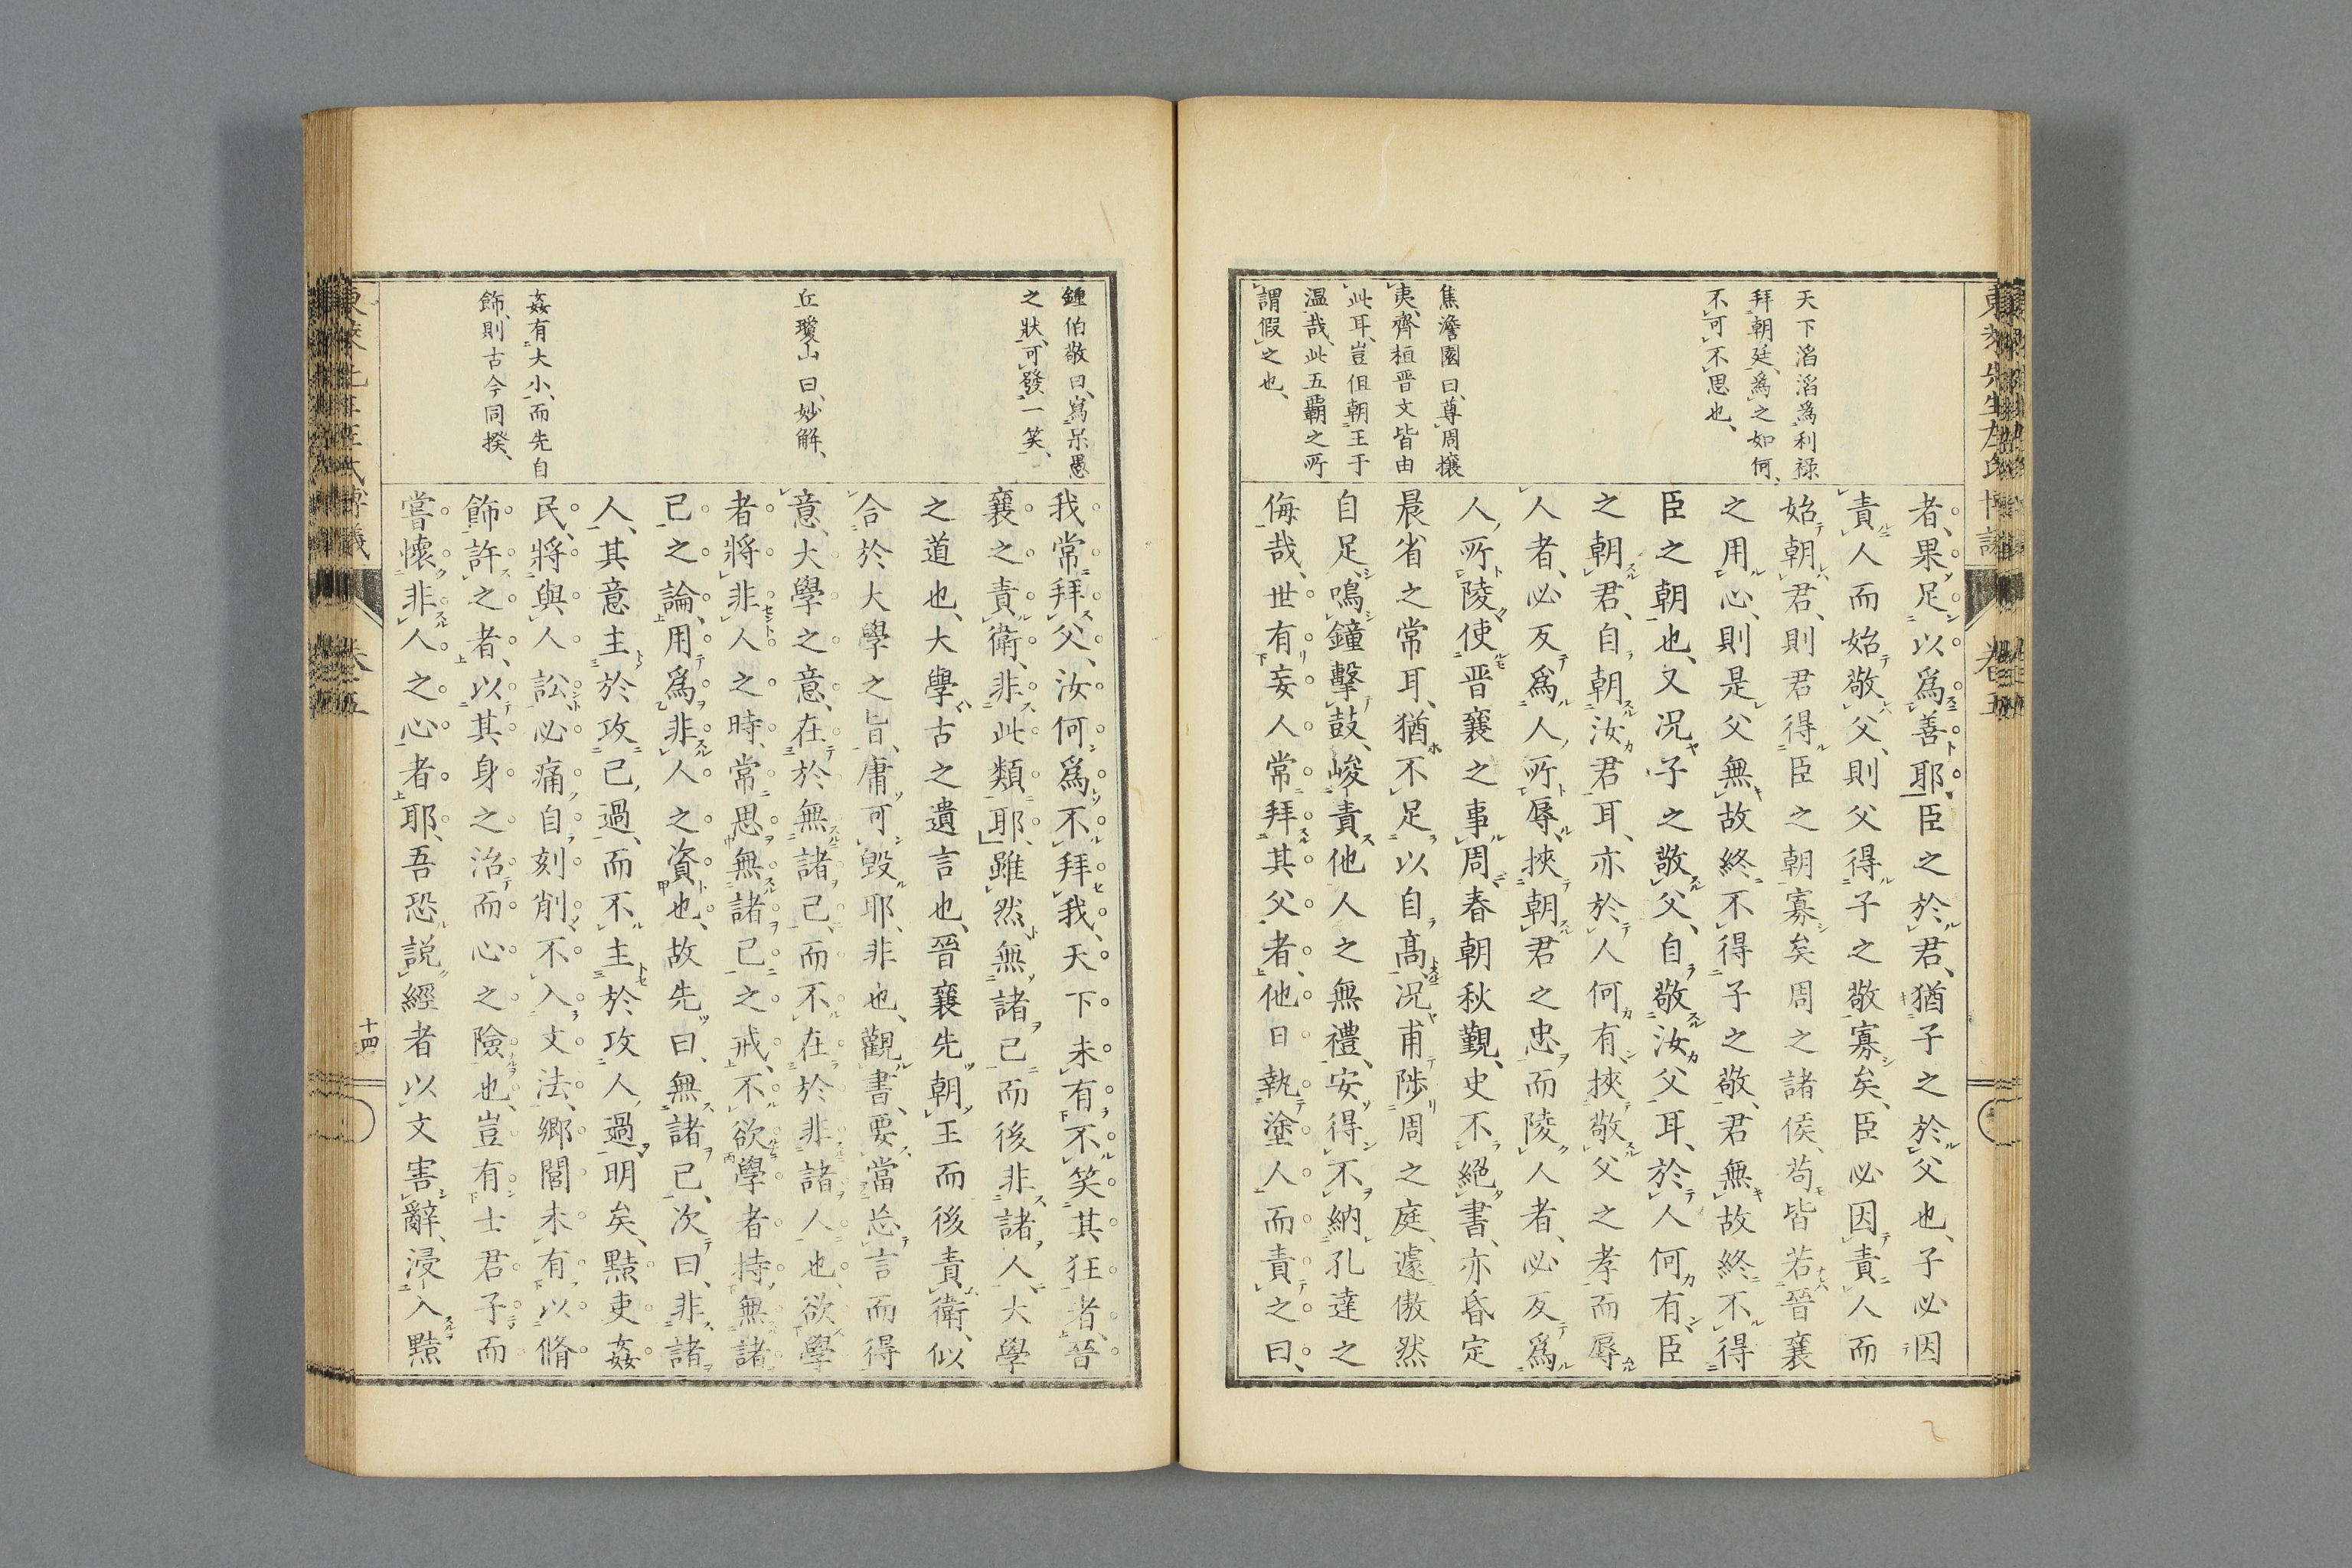 天下滔滔爲利祿
拜朝廷、爲之如何、
不可不思也、
焦澹園曰、尊周攘
夷、齊桓晋文皆由
此耳、豈但朝王于
温哉、此五覇之所
謂假之也、
者、果足以爲善耶、臣之於君、猶子之於父也、子必因
責人而始敬父、則父得子之敬寡矣、臣必因責人而
始朝君、則君得臣之朝寡矣周之諸侯、苟皆若晉襄
之用心、則是父無故終不得子之敬、君無故終不得
臣之朝也、又况子之敬父、自敬汝父耳、於人何有、臣
之朝君、自朝汝君耳、亦於人何有、挾敬父之孝而辱
人者、必反爲人所辱、挾朝君之忠而陵人者、必反爲
人所陵使晋襄之事周春朝秋覲、史不絕書、亦昏定
晨省之常耳、猶不足以自高、况甫陟周之庭、遽傲然
自足、鳴鐘擊鼓、峻責他人之無禮、安得不納孔達之
侮哉、世有妄人常拜其父者、他日執塗人而責之曰、
東萊先生左氏博議
卷五
鍾伯敬曰、寫呆愚
之狀、可發一笑、
丘瓊山曰、妙解、
姦有大小、而先自
飾、則古今同揆、
我常拜父、汝何爲不拜我、天下未有不笑其狂者、晉
襄之責衛、非此類耶、雖然無諸己而後非諸人、大學
之道也、大學古之遺言也、晉襄先朝王而後責衛、似
合於大學之旨、庸可毀耶、非也、觀書、要當忘言而得
意、大學之意、在於無諸己、而不在於非諸人也、欲學
者將非人之時、常思無諸己之戒、不欲學者持無諸
己之論、用爲非人之資也、故先曰、無諸己、次曰、非諸
人、其意主於攻己過、而不主於攻人過明矣、黠吏姦
民、將與人訟、必痛自刻削、不入文法、鄉閭未有以脩
飾許之者、以其身之治而心之險也、豈有士君子而
嘗懷非人之心者耶、吾恐說經者以文害辭、浸入黠
東萊先生左氏博議
卷五
十四